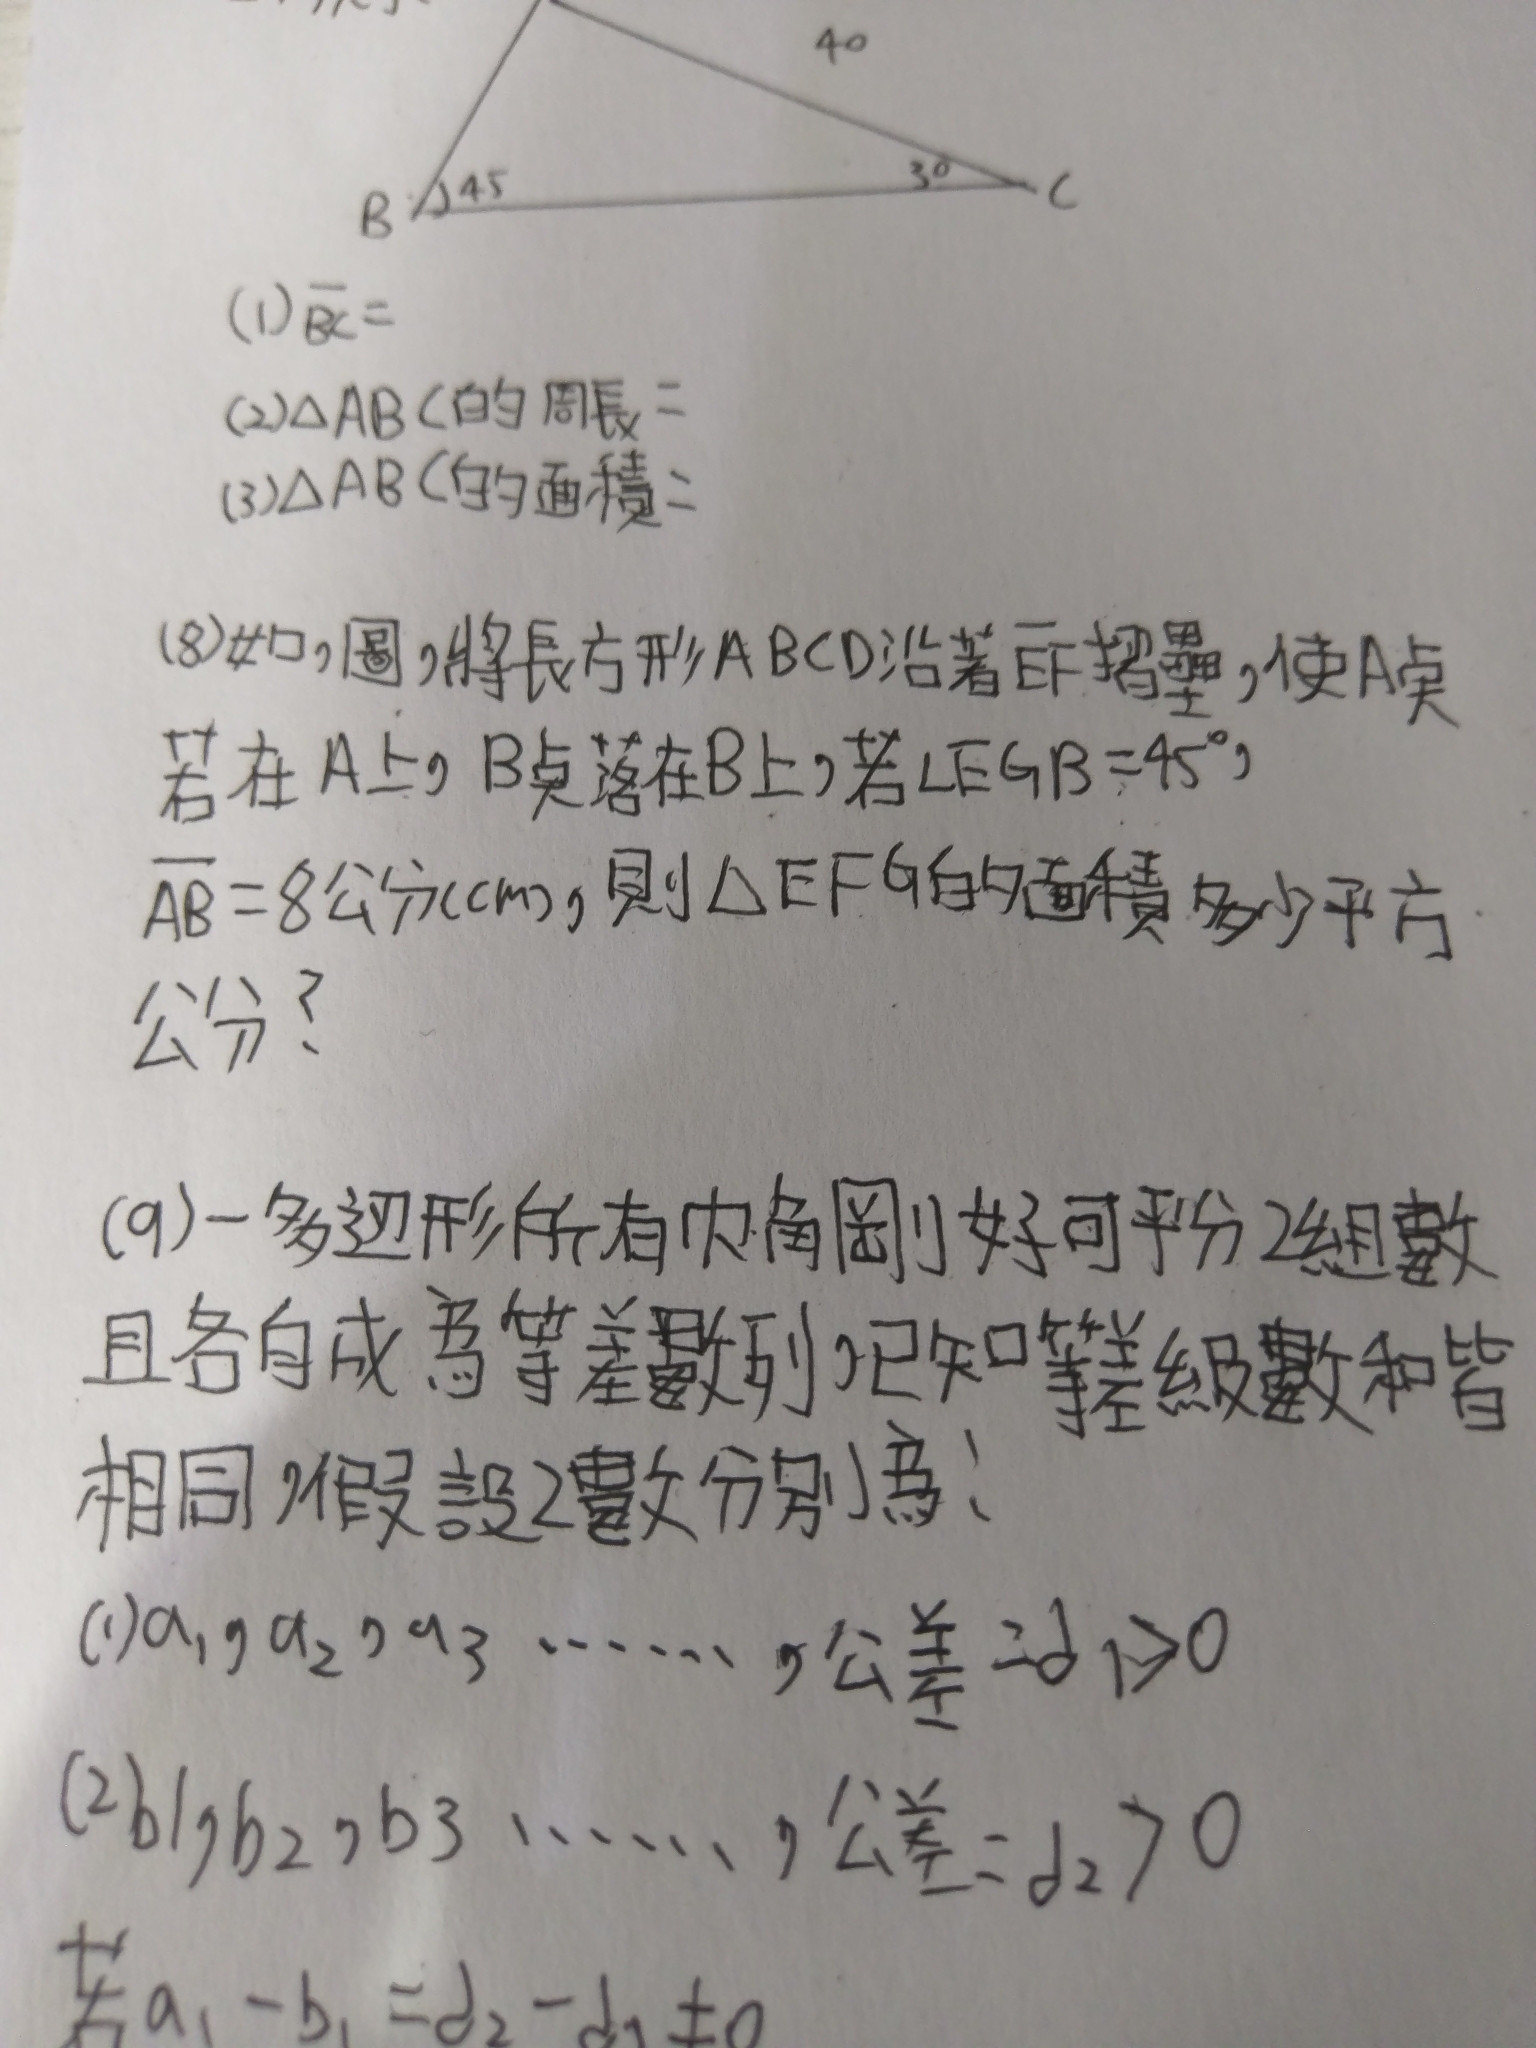 40
45
30
B
C
(1) BC =
(2) △ABC的周長=
(3) △ABC的面積=
(8)如圖,將長方形ABCD沿著EF摺疊,使A點
若在A上,B點落在B上,若∠EGB=45°,
AB=8公分(cm),則△EFG的面積多少平方
公分?
(9)一多边形所有內角剛好可平分2組數
且各自成為等差數列,已知等差級數和皆
相同,假設2數分別為:
(1)a1,a2,a3……,公差=d1>0
(2)b1,b2,b3……,公差=d2>0
若a1-b1=d2-d1≠0